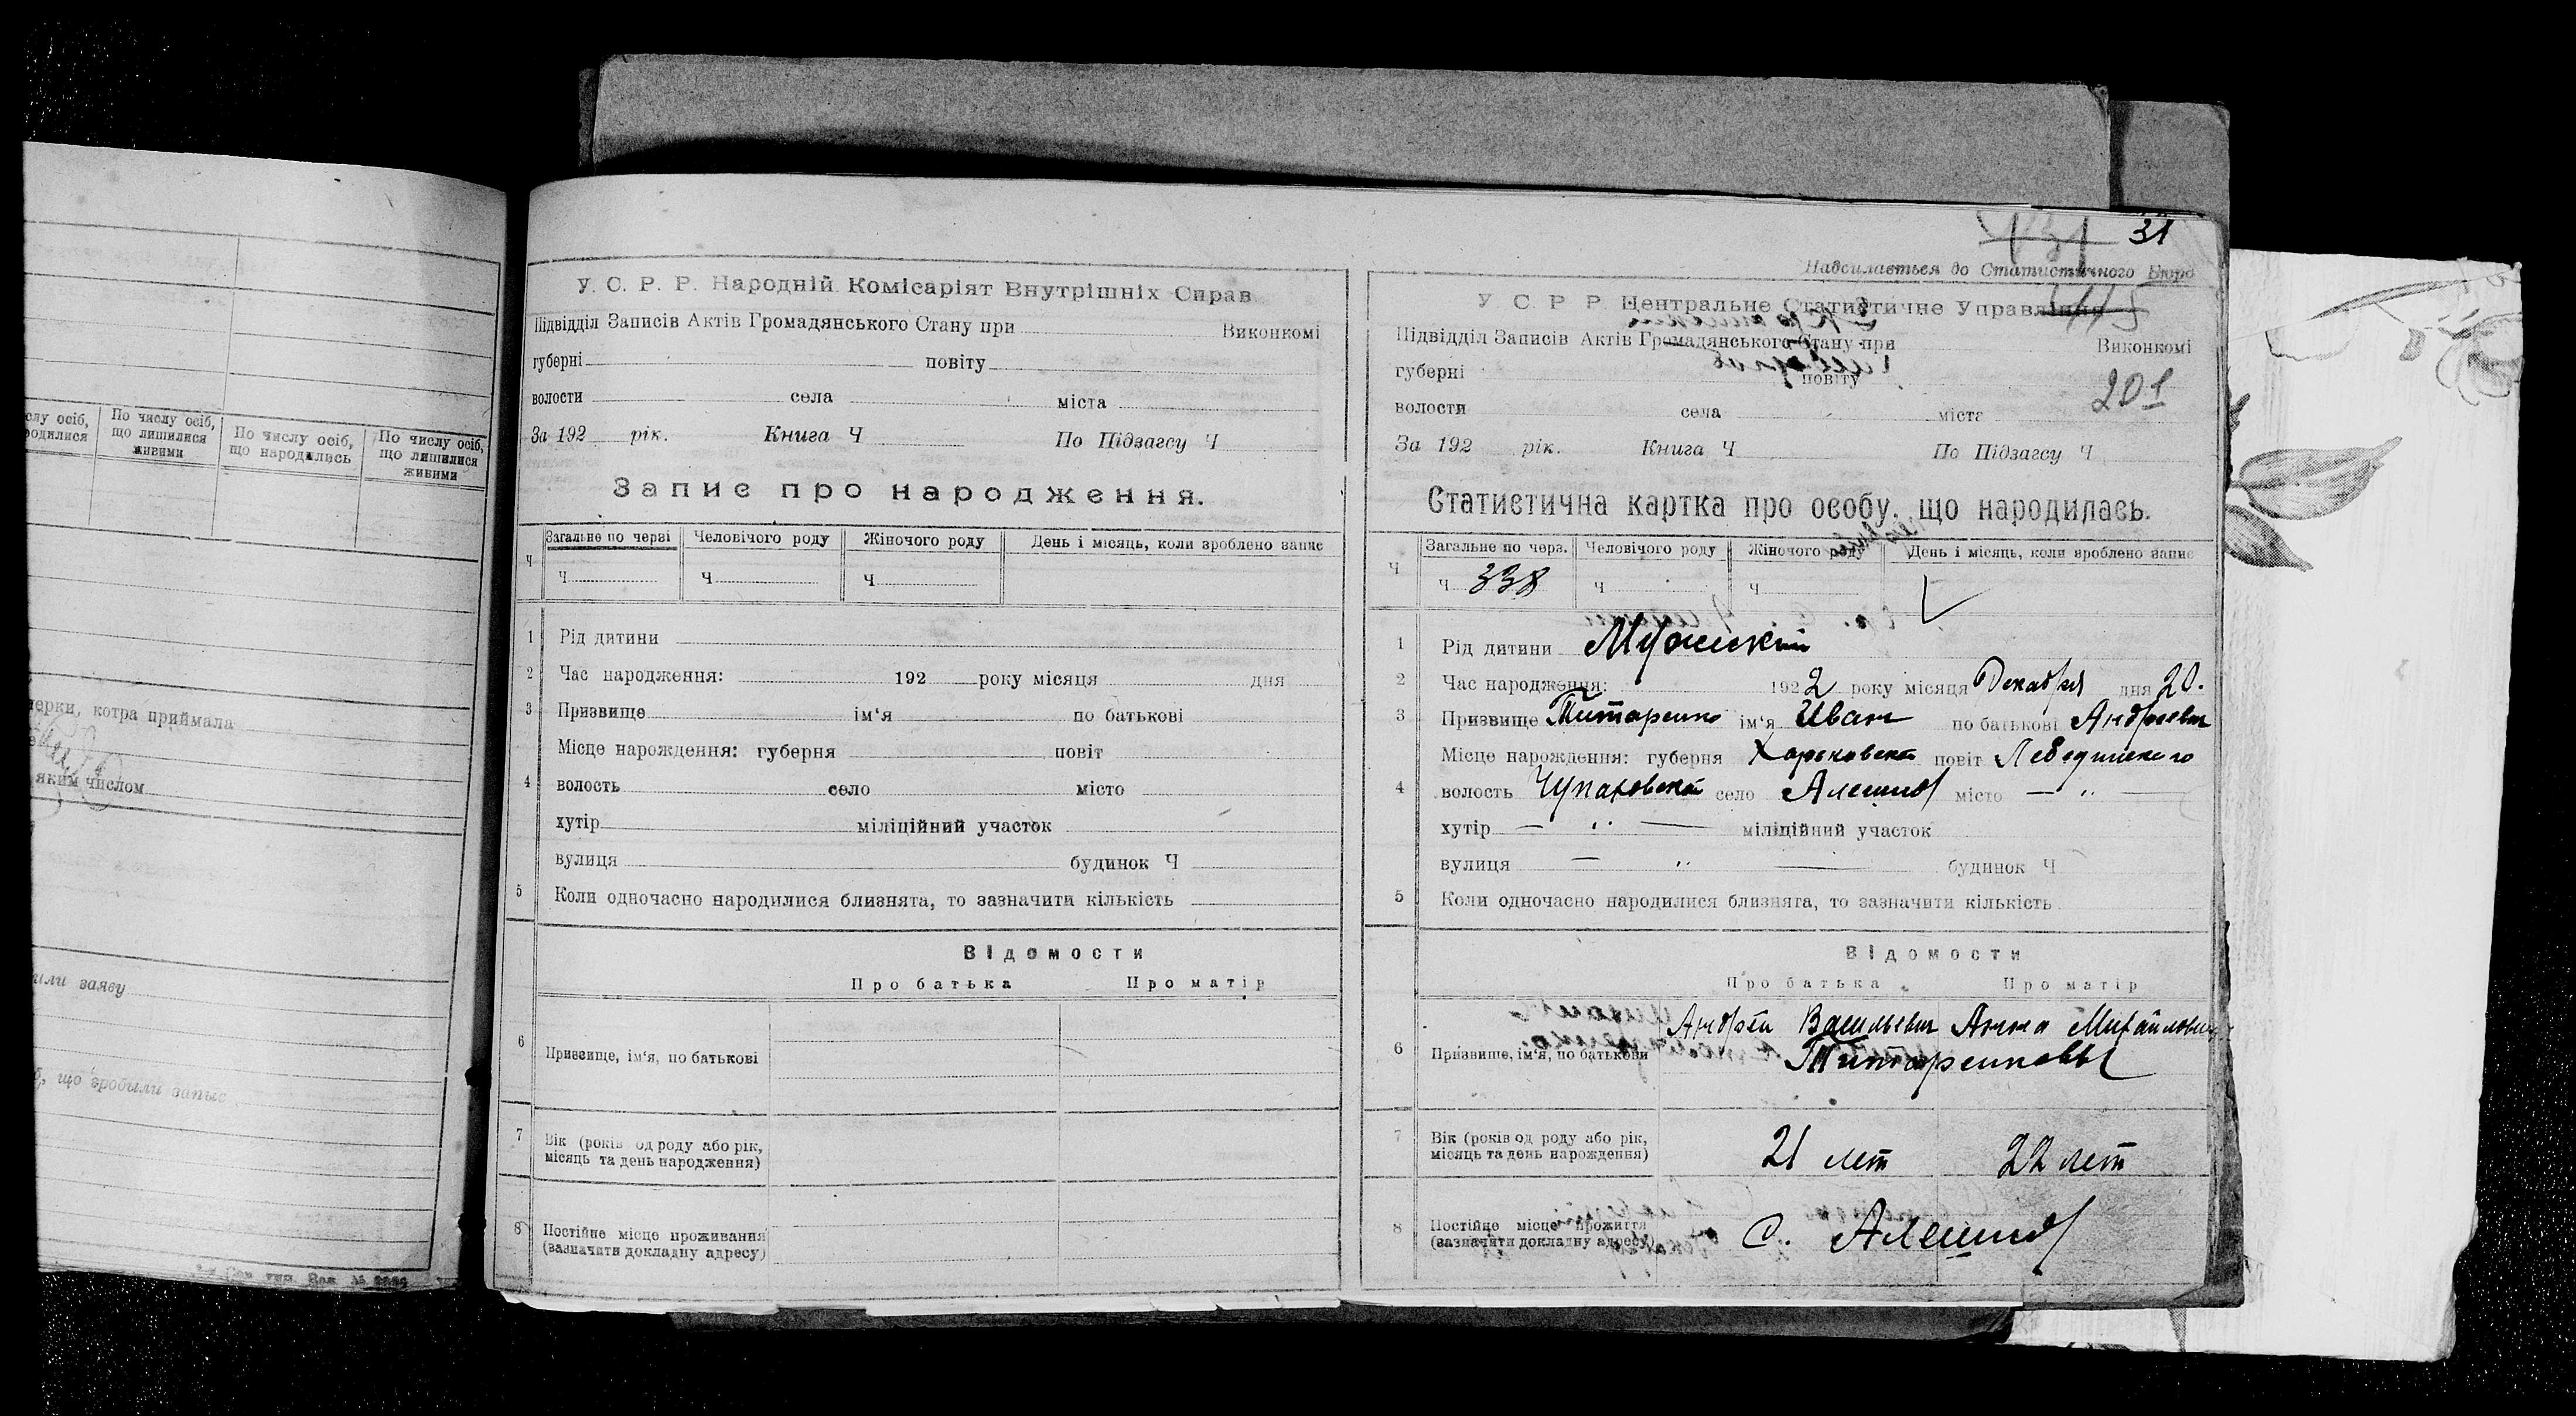 слу осіб,
родилися
По числу осіб,
що лишилися
живими
По числу осіб,
що народились
По числу осіб,
що лишилися
живими
черки, котра приймала
яким числом
или заяву
що зробыли запыс
У. С. Р. Р. Народній Комісаріят Внутрішніх Справ
Підвідділ Записів Актів Громадянського Стану при Виконкомі
губерні повіту
волости села міста
За 192 рік. Книга Ч По Підзагсу Ч
Запис про народження.
Ч Загальне по черзі Человічого роду Жіночого роду День і місяць, коли зроблено запис
Ч Ч Ч
1 Рід дитини
2 Час народження: 192 року місяця дня
3 Призвище ім'я по батькові
Місце нарождення: губерня повіт
4 волость село місто
хутір міліційний участок
вулиця будинок Ч
5 Коли одночасно народилися близнята, то зазначити кількість
Відомости
Про батька Про матір
6 Призвище, ім'я, по батькові
7 Вік (років од роду або рік,
місяць та день народження)
8 Постійне місце проживання
(зазначити докладну адресу)
131 31
Надсилається до Статистичного Бюро
У. С. Р. Р. Центральне Статистичне Управління
Підвідділ Записів Актів Громадянського Стану при Виконкомі
губерні повіту
201
волости села міста
За 192 рік. Книга Ч По Підзагсу Ч
Статистична картка про особу, що народилась.
Ч Загальне по черз. Человічого роду Жіночого роду День і місяць, коли зроблено запис
Ч 338 Ч Ч
1 Рід дитини Мужиский
2 Час народження: 1922 року місяця Декабря дня 20.
3 Призвище Титаренко ім'я Иван по батькові Андреевич
Місце нарождення: губерня Харьковская повіт Лебединского
4 волость Чупаховской село Алешня місто — " —
хутір — " — міліційний участок
вулиця — " — будинок Ч
5 Коли одночасно народилися близнята, то зазначити кількість
Відомости
Про батька Про матір
Андрей Васильевич Анна Михайловна
6 Призвише, ім'я, по батькови
Титаренковы
7 Вік (років од роду або рік,
місяць та день нарождення)
21 лет 22 лет
8 Постійне місце прожиття
(зазначити докладну адресу)
с. Алешня